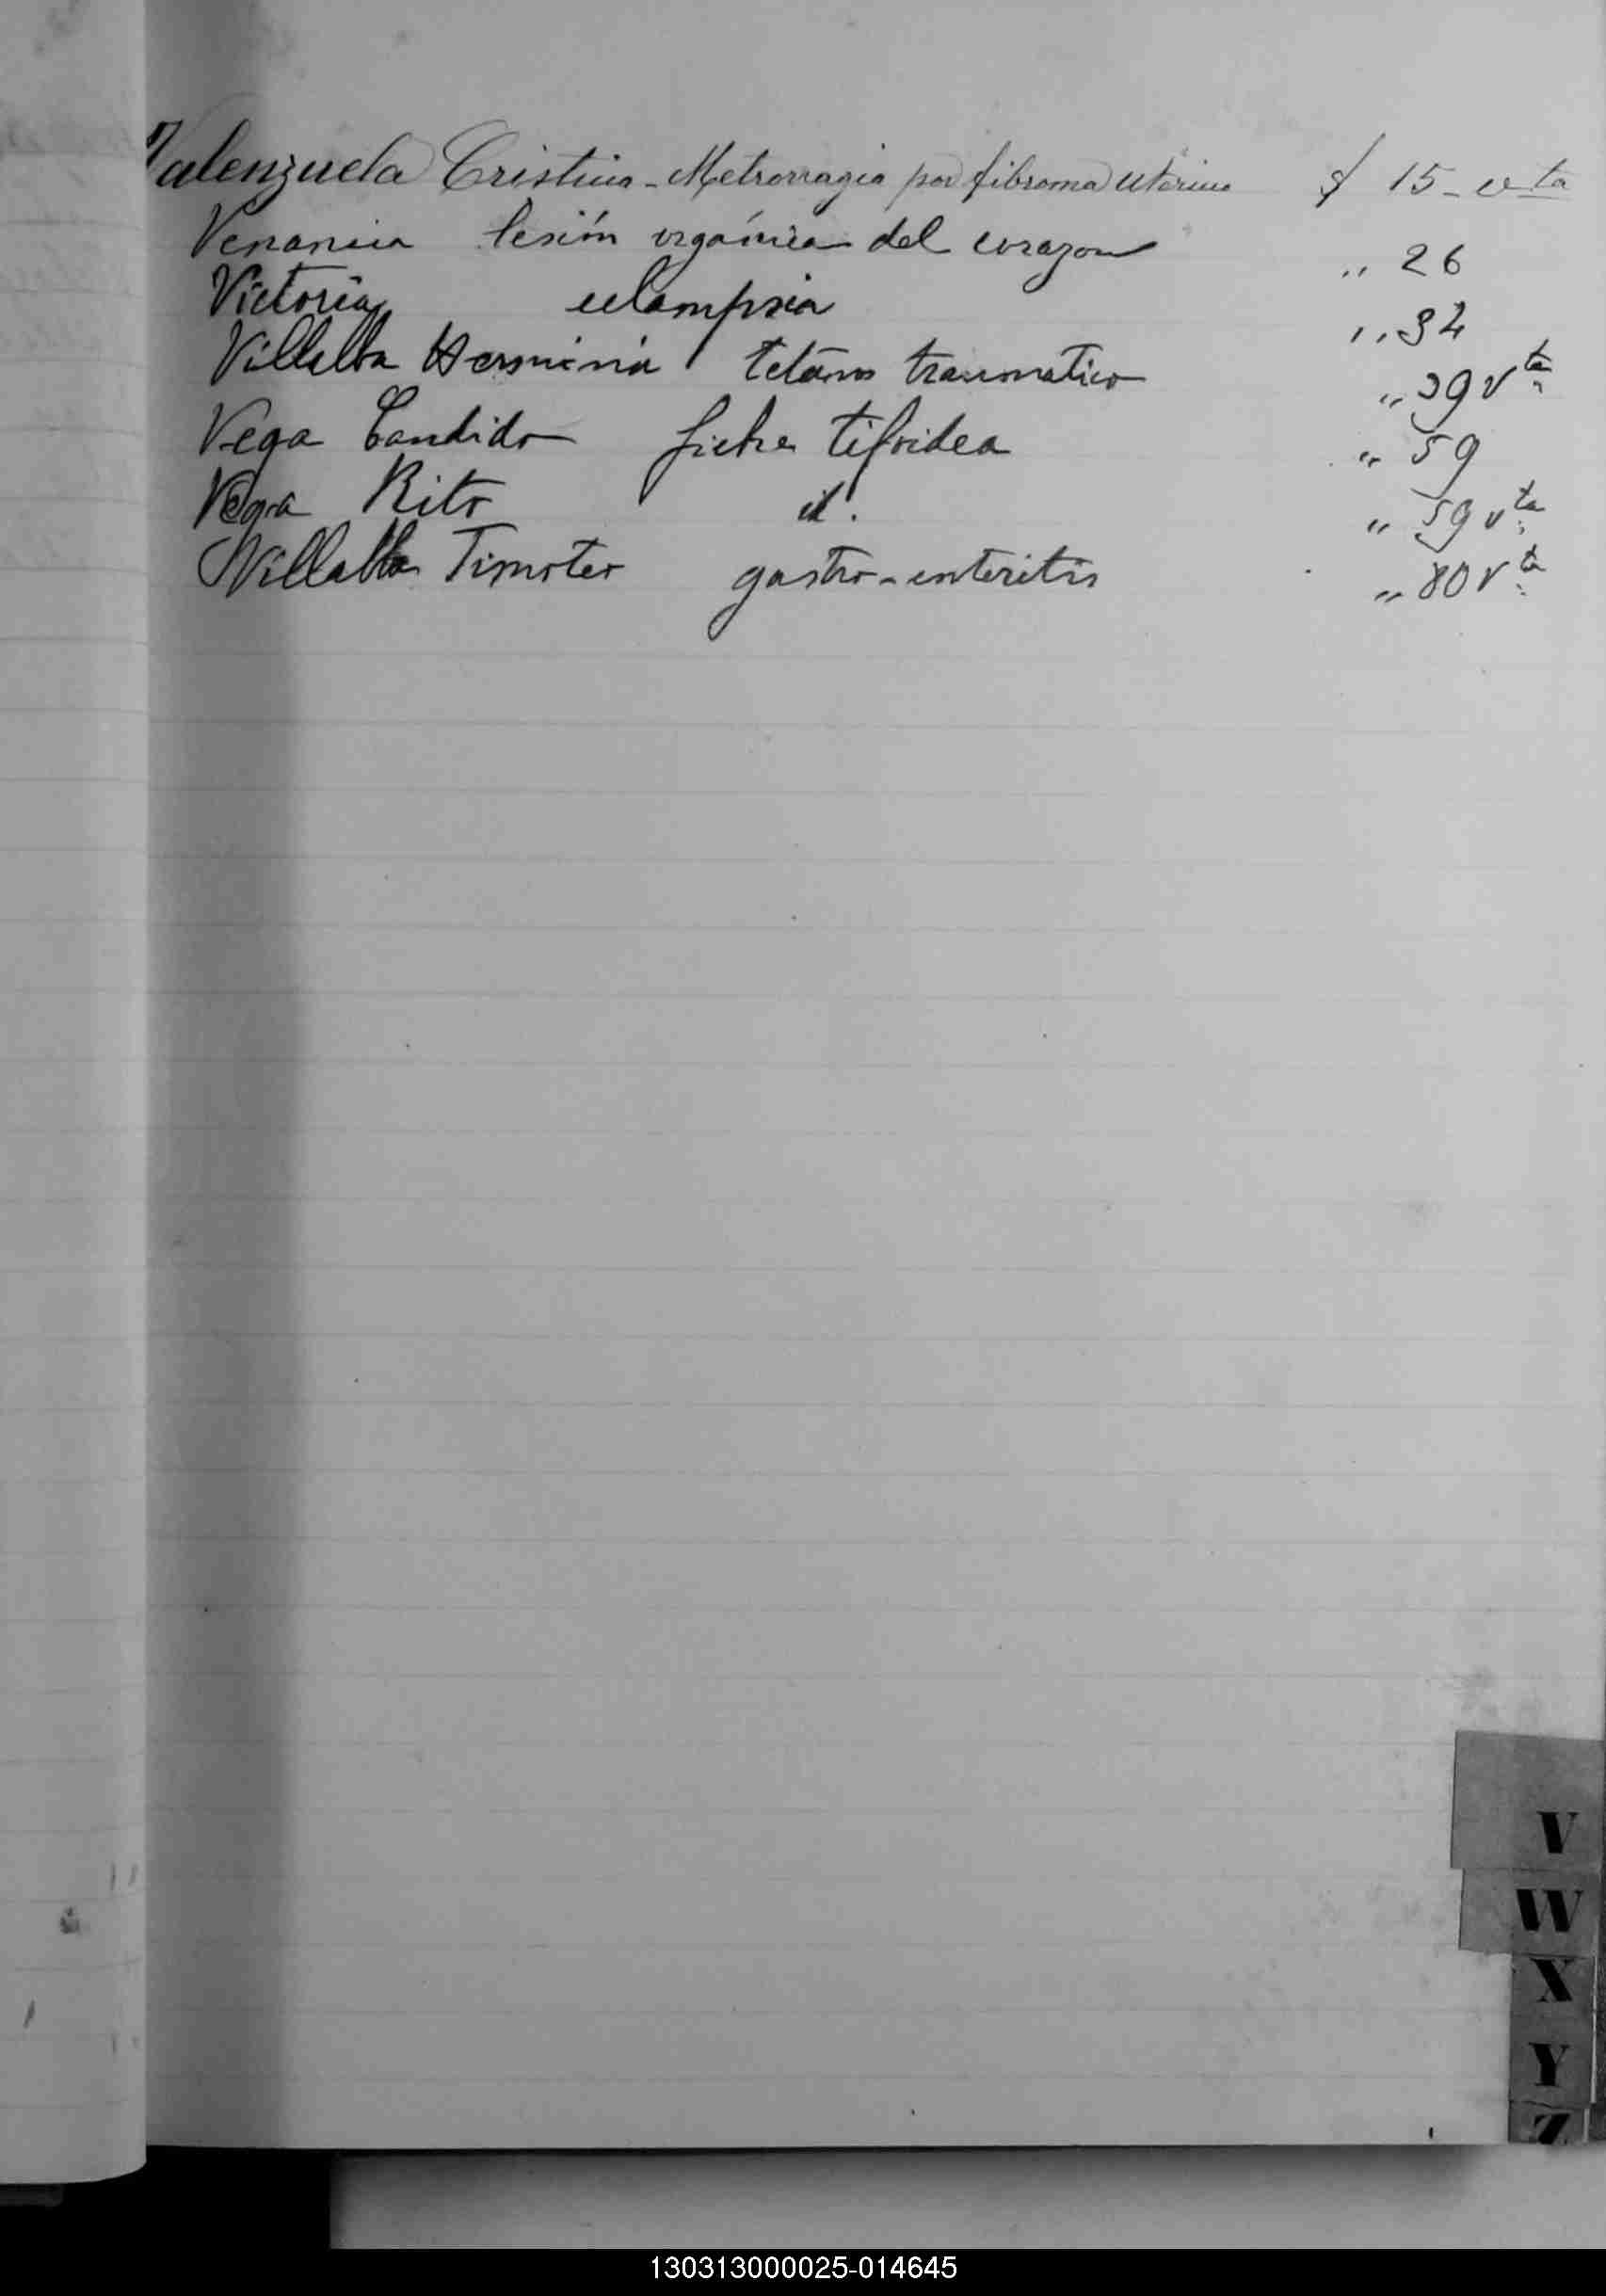 Valenzuela Cristina - Metrorragia por fibroma uterino f 15 - vta
Venancia lesión orgánica del corazon " 26
Victoria eclampsia " 34
Villalba Herminia tetano traumatico " 39 vta
Vega Candido fiebre tifoidea " 59
Vega Rito id. " 59 vta
Villalba Timoteo gastro-enteritis " 80 vta
V
W
X
Y
Z
130313000025-014645